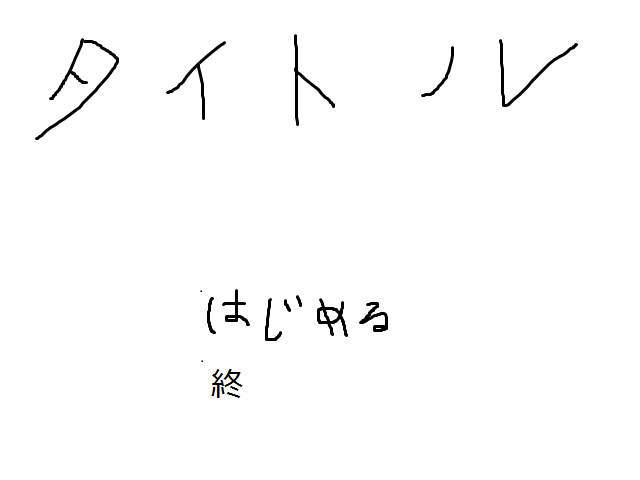 タイトル
はじめる
終